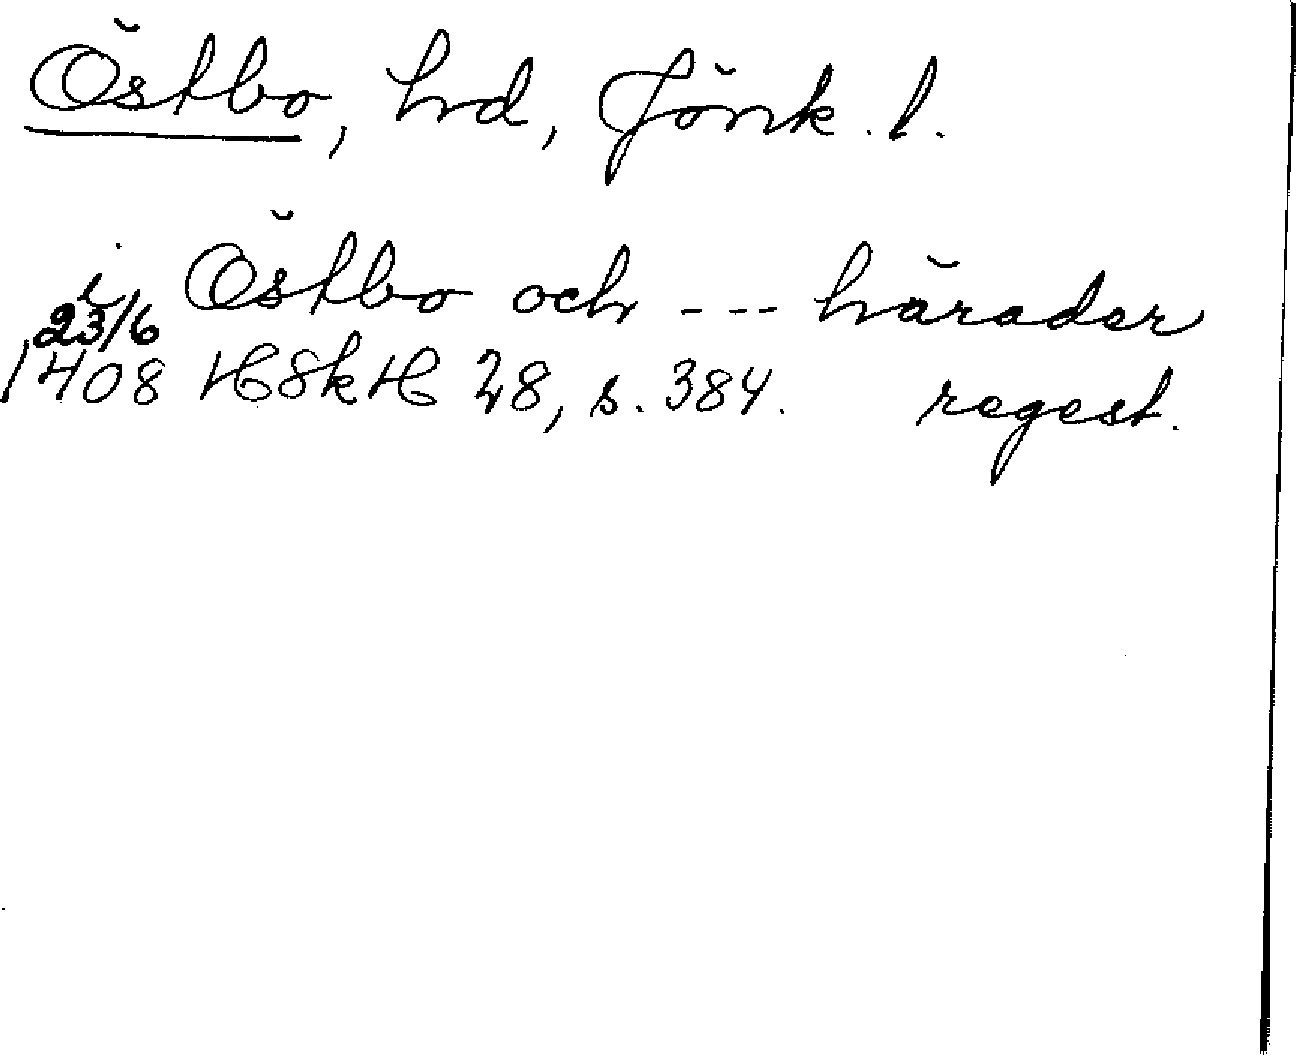 Östbo, hd, Jönk. l.
i Östbo och --- härader
23/6
1408 HSkH 28, s. 384. regest.